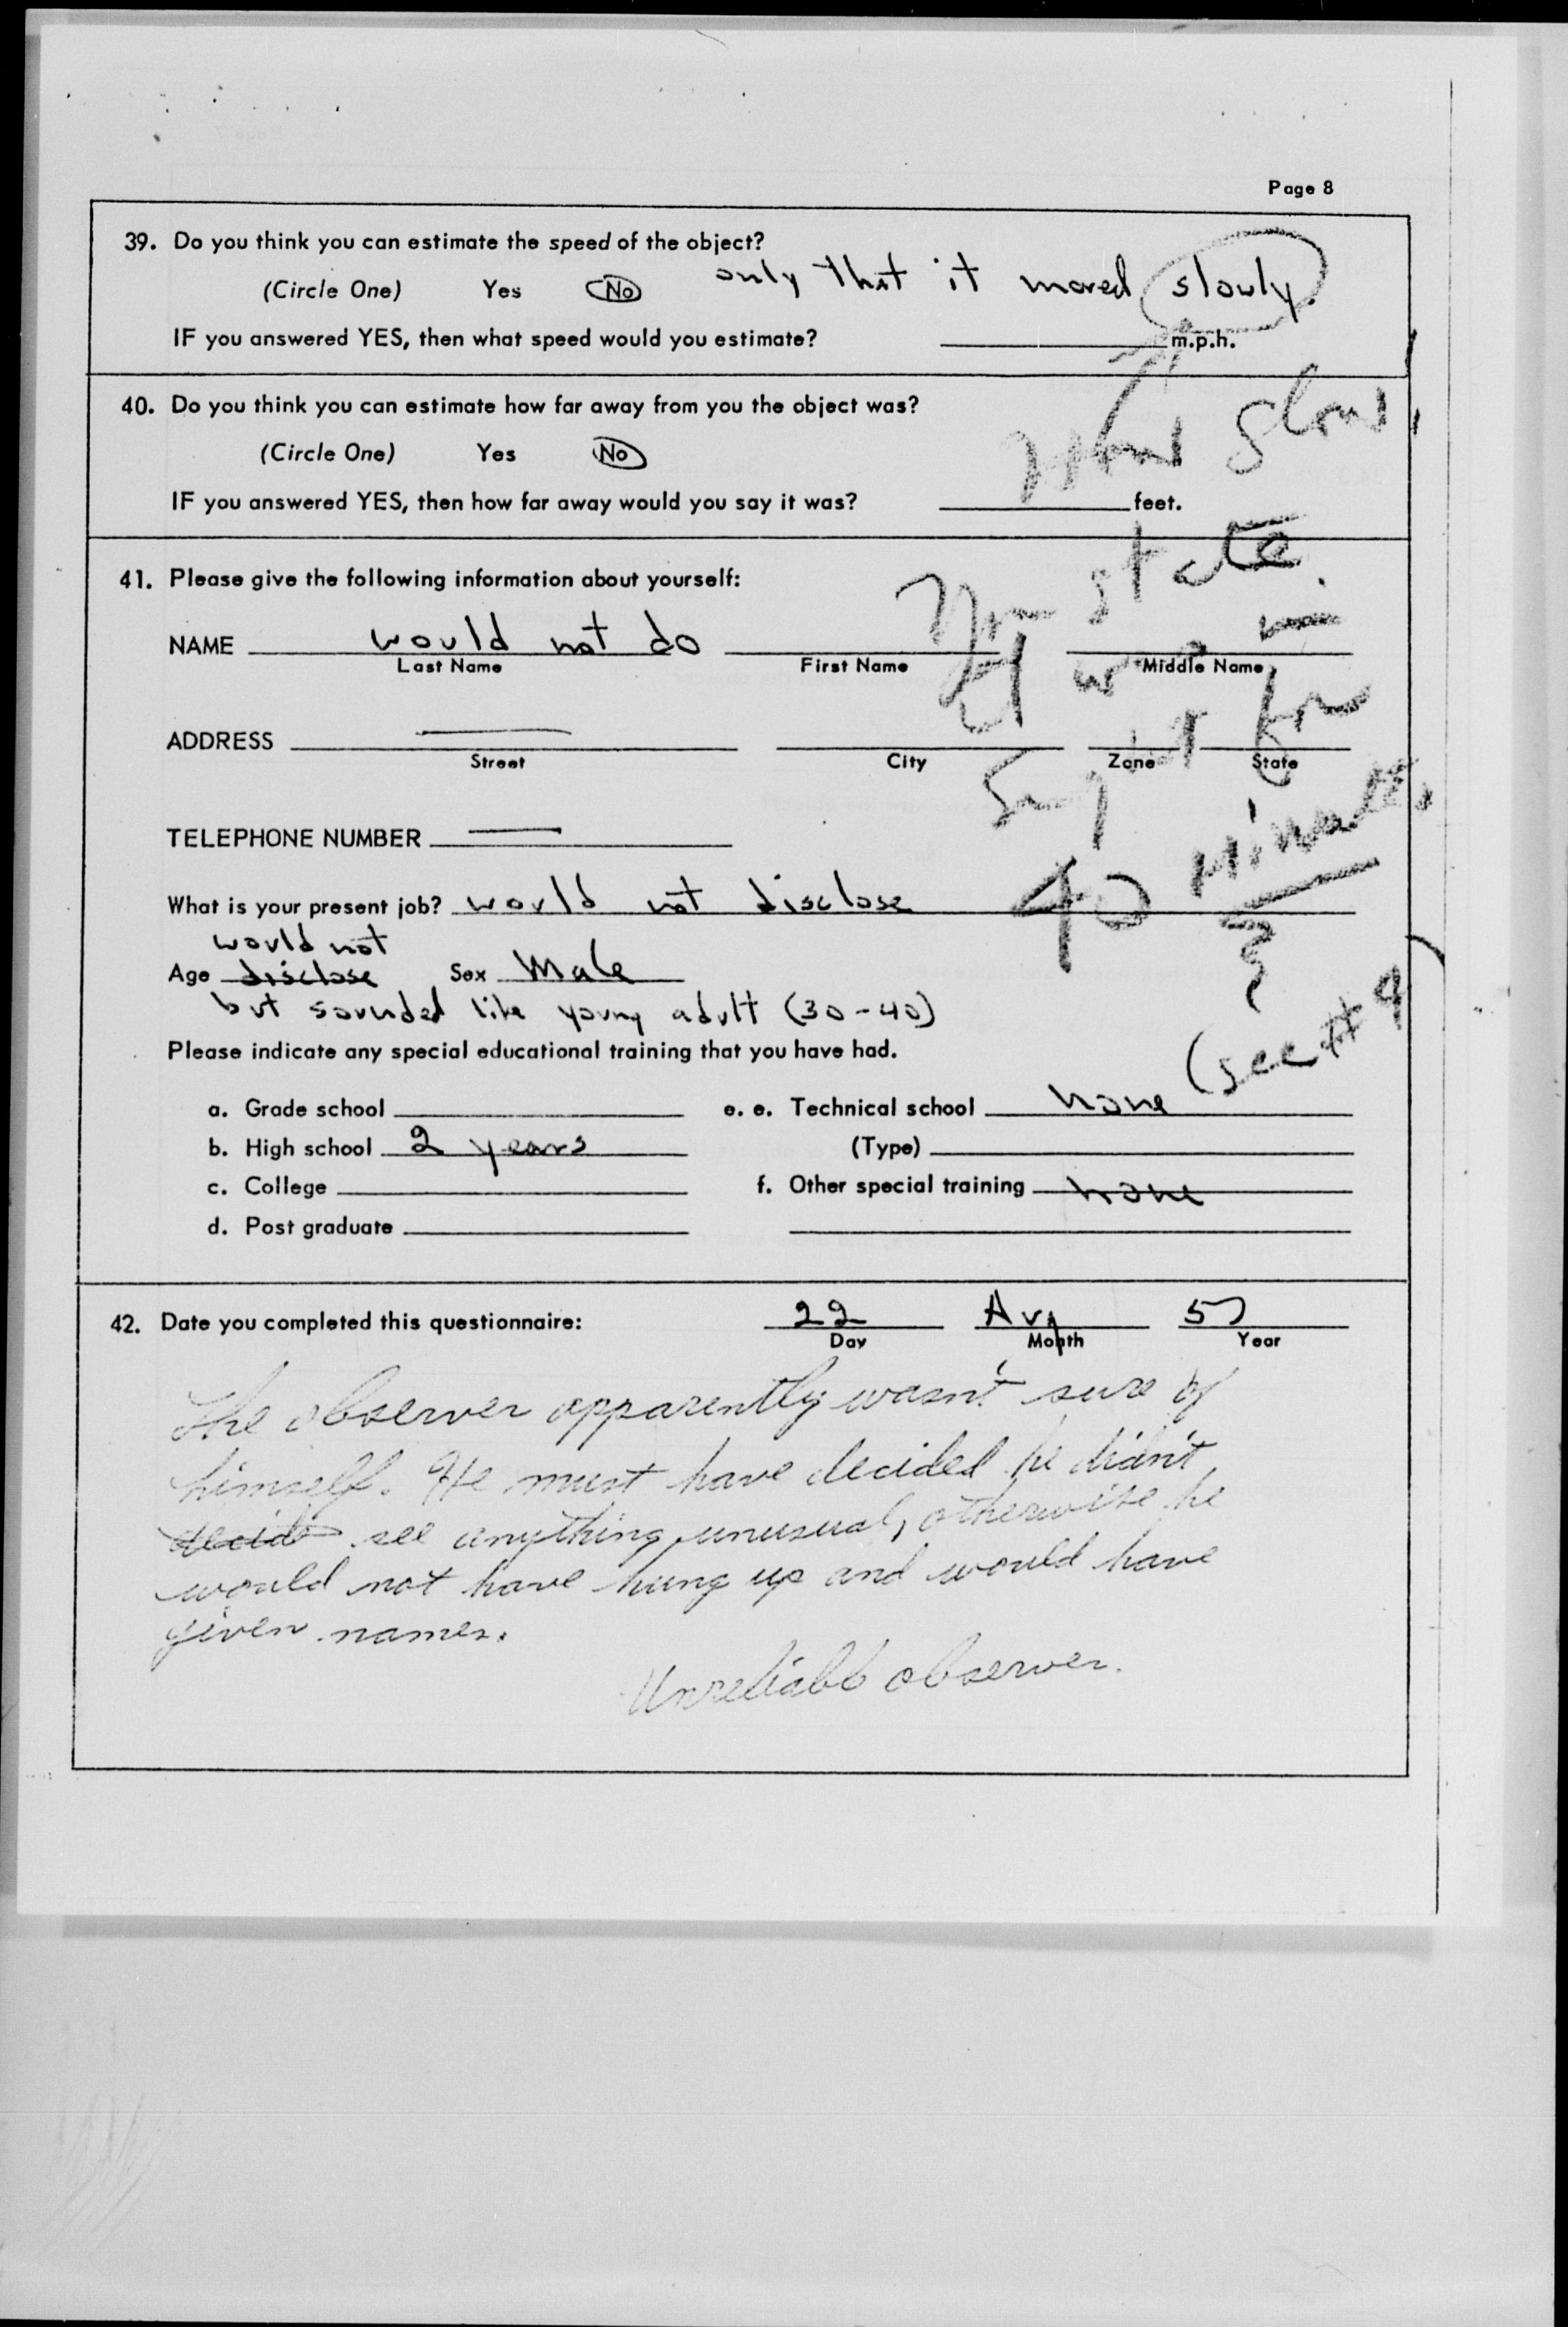 Page 8
39. Do you think you can estimate the speed of the object?
(Circle One) Yes No only that it moved slowly.
IF you answered YES, then what speed would you estimate? m.p.h.
How slow,
40. Do you think you can estimate how far away from you the object was?
(Circle One) Yes No
IF you answered YES, then how far away would you say it was? feet.
You state
it was in
sight for
40 minutes
(see #9
41. Please give the following information about yourself:
NAME would not do
Last Name First Name Middle Name
ADDRESS
Street City Zone State
TELEPHONE NUMBER
What is your present job? would not disclose
would not
Age disclose Sex Male
but sounded like young adult (30-40)
Please indicate any special educational training that you have had.
a. Grade school e. e. Technical school none
b. High school 2 years (Type)
c. College f. Other special training none
d. Post graduate
42. Date you completed this questionnaire: 22 Aug 57
Day Month Year
The observer apparently wasn't sure of
himself. He must have decided he didn't
decide see anything unusual, otherwise he
would not have hung up and would have
given names.
Unreliable observer.